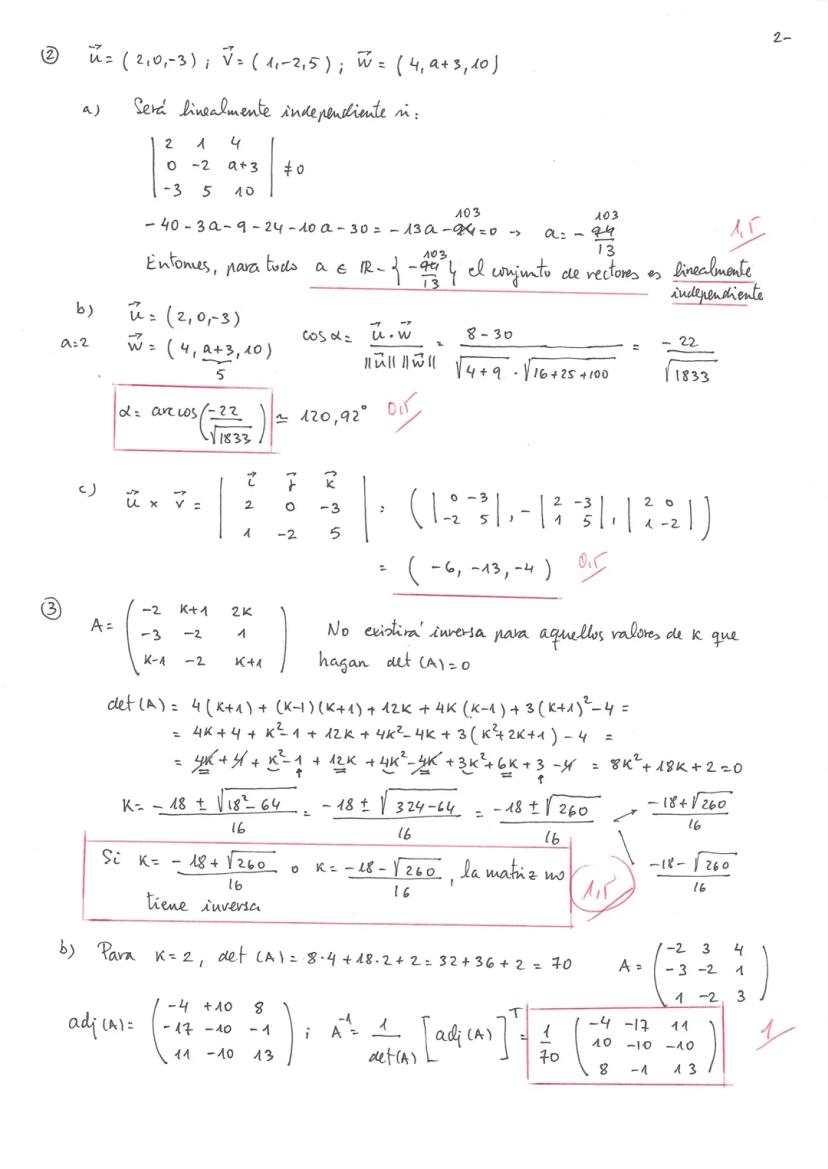 2-
② u⃗ = (2,0,-3) ; v⃗ = (1,-2,5) ; w⃗ = (4, a+3, 10)
a) Será linealmente independiente si:
| 2 1 4 |
| 0 -2 a+3 | ≠ 0
| -3 5 10 |
103 103
-40-3a-9-24-10a-30 = -13a - 94 = 0 → a = - 94/13 1,5
Entonces, para todo a ∈ ℝ - { - 103/13 } el conjunto de vectores es linealmente
independiente
b) u⃗ = (2,0,-3)
a=2 w⃗ = (4, a+3, 10) cos α = u⃗ · w⃗ / ||u⃗|| ||w⃗|| = 8-30 / √4+9 · √16+25+100 = -22 / √1833
5
α = arc cos ( -22 / √1833 ) ≃ 120,92° 0,5
c) u⃗ × v⃗ = | i⃗ j⃗ k⃗ |
| 2 0 -3 | = ( | 0 -3 | , - | 2 -3 | , | 2 0 | )
| 1 -2 5 | | -2 5 | | 1 5 | | 1 -2 |
= (-6, -13, -4) 0,5
③ A = ( -2 K+1 2K )
( -3 -2 1 ) No existirá inversa para aquellos valores de k que
( K-1 -2 K+1 ) hagan det(A)=0
det(A) = 4(K+1) + (K-1)(K+1) + 12K + 4K(K-1) + 3(K+1)² - 4 =
= 4K + 4 + K² - 1 + 12K + 4K² - 4K + 3(K² + 2K + 1) - 4 =
= 4K + 4 + K² - 1 + 12K + 4K² - 4K + 3K² + 6K + 3 - 4 = 8K² + 18K + 2 = 0
K = -18 ± √18² - 64 / 16 = -18 ± √324-64 / 16 = -18 ± √260 / 16 -18+√260 / 16
-18-√260 / 16
Si K = -18+√260 / 16 o K = -18-√260 / 16 , la matriz no 1,5
tiene inversa
b) Para K=2, det(A) = 8·4 + 18·2 + 2 = 32 + 36 + 2 = 70 A = ( -2 3 4 )
( -3 -2 1 )
( 1 -2 3 )
adj(A) = ( -4 +10 8 )
( -17 -10 -1 ) ; A⁻¹ = 1/det(A) [adj(A)]ᵀ = 1/70 ( -4 -17 11 ) 1
( 11 -10 13 ) ( 10 -10 -10 )
( 8 -1 13 )